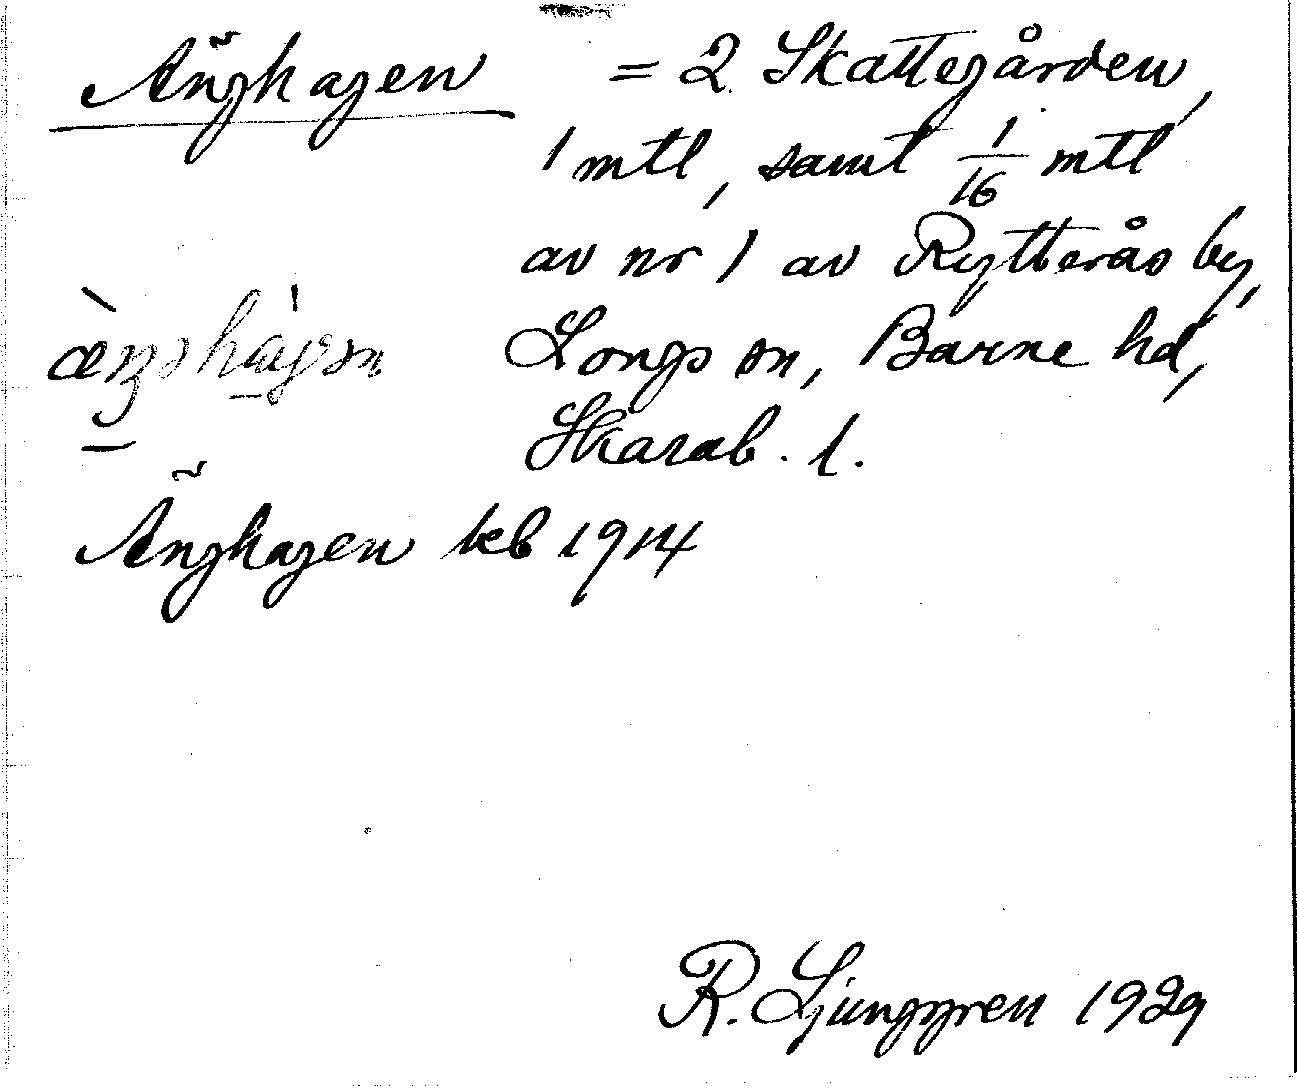 Änghagen = 2 Skattegården,
1 mtl, samt 1/16 mtl
av nr 1 av Rytterås by,
Longs sn, Barne hd,
Skarab. l.
Änghagen keb 1914
R. Ljunggren 1929